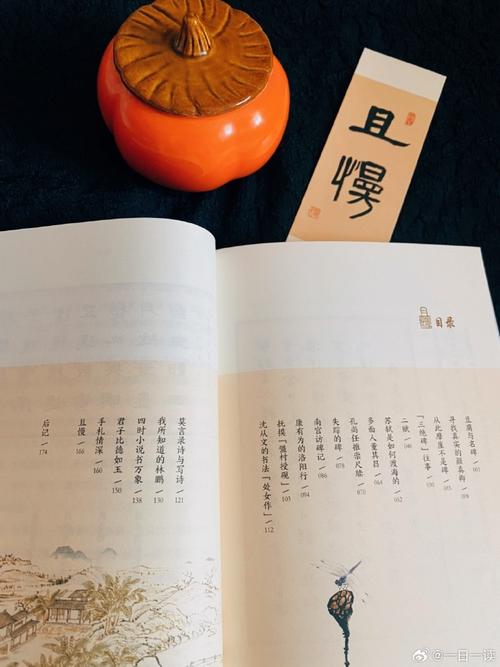 且慢
且慢
目录
豆腐与名碑 /001
寻找真实的颜真卿 /008
从此摩崖不是碑
「三绝碑」往事 /030
二赋 /046
苏轼是如何渡海的 /052
多面人董其昌 /064
孔尚任推崇尺牍 /070
失踪的碑 /078
南宫访碑记 /086
康有为的洛阳行 /094
抚摸「盟村授砚」 /103
沈从文的书法「处女作」 /112
莫言录诗与写诗 /121
我所知道的林鹏 /130
四时小说书万象 /138
君子比德如玉 /150
手札情深 /160
且慢 /166
后记 /174
@一日一读